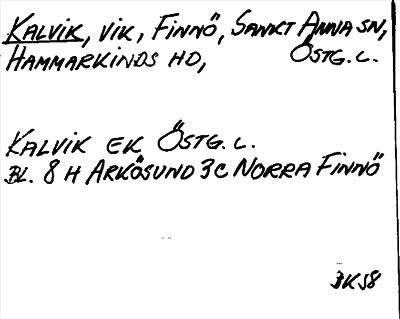 KALVIK, VIK, FINNÖ, SANKT ANNA SN,
HAMMARKINDS HD, ÖSTG. L.
KALVIK EK ÖSTG. L.
BL. 8 H ARKÖSUND 3C NORRA FINNÖ
BK58